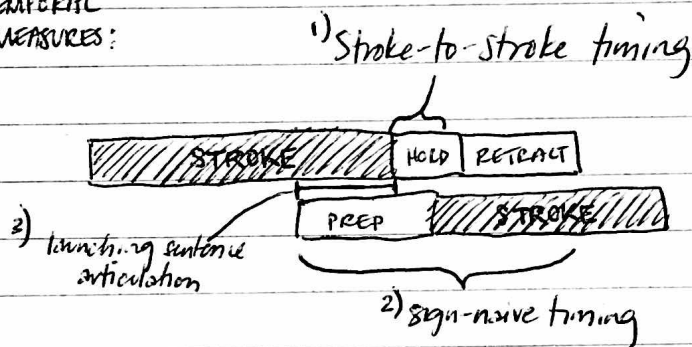 TEMPORAL
MEASURES:
1) Stroke-to-stroke timing
STROKE HOLD RETRACT
PREP STROKE
3) launching sentence
articulation
2) sign-naive timing